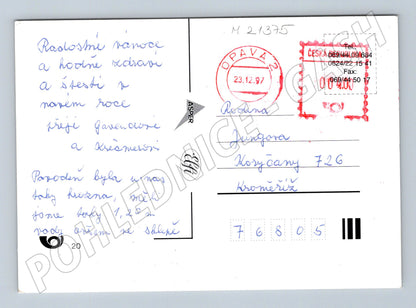 M 21375
Radostné vánoce
a hodně zdraví
a štěstí v
novém roce
přejí Gavendovi
a Krčmářovi
Povodeň byla u nás
taky hrozná, měli
jsme taky 1,25 m
vody ve sklepě
20
ASPER
OPAVA 2
23.12.97
ČESKÁ
Tel.:
0624/22 15 41
Fax:
069/44 50 17
Rodina
Jungova
Koryčany 726
Kroměříž
7 6 8 0 5
POHLEDNICE - GASH